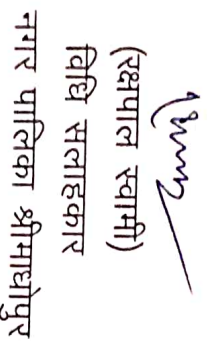 (रक्षपाल स्वामी)
विधि सलाहकार
नगर पालिका श्रीमाधोपुर